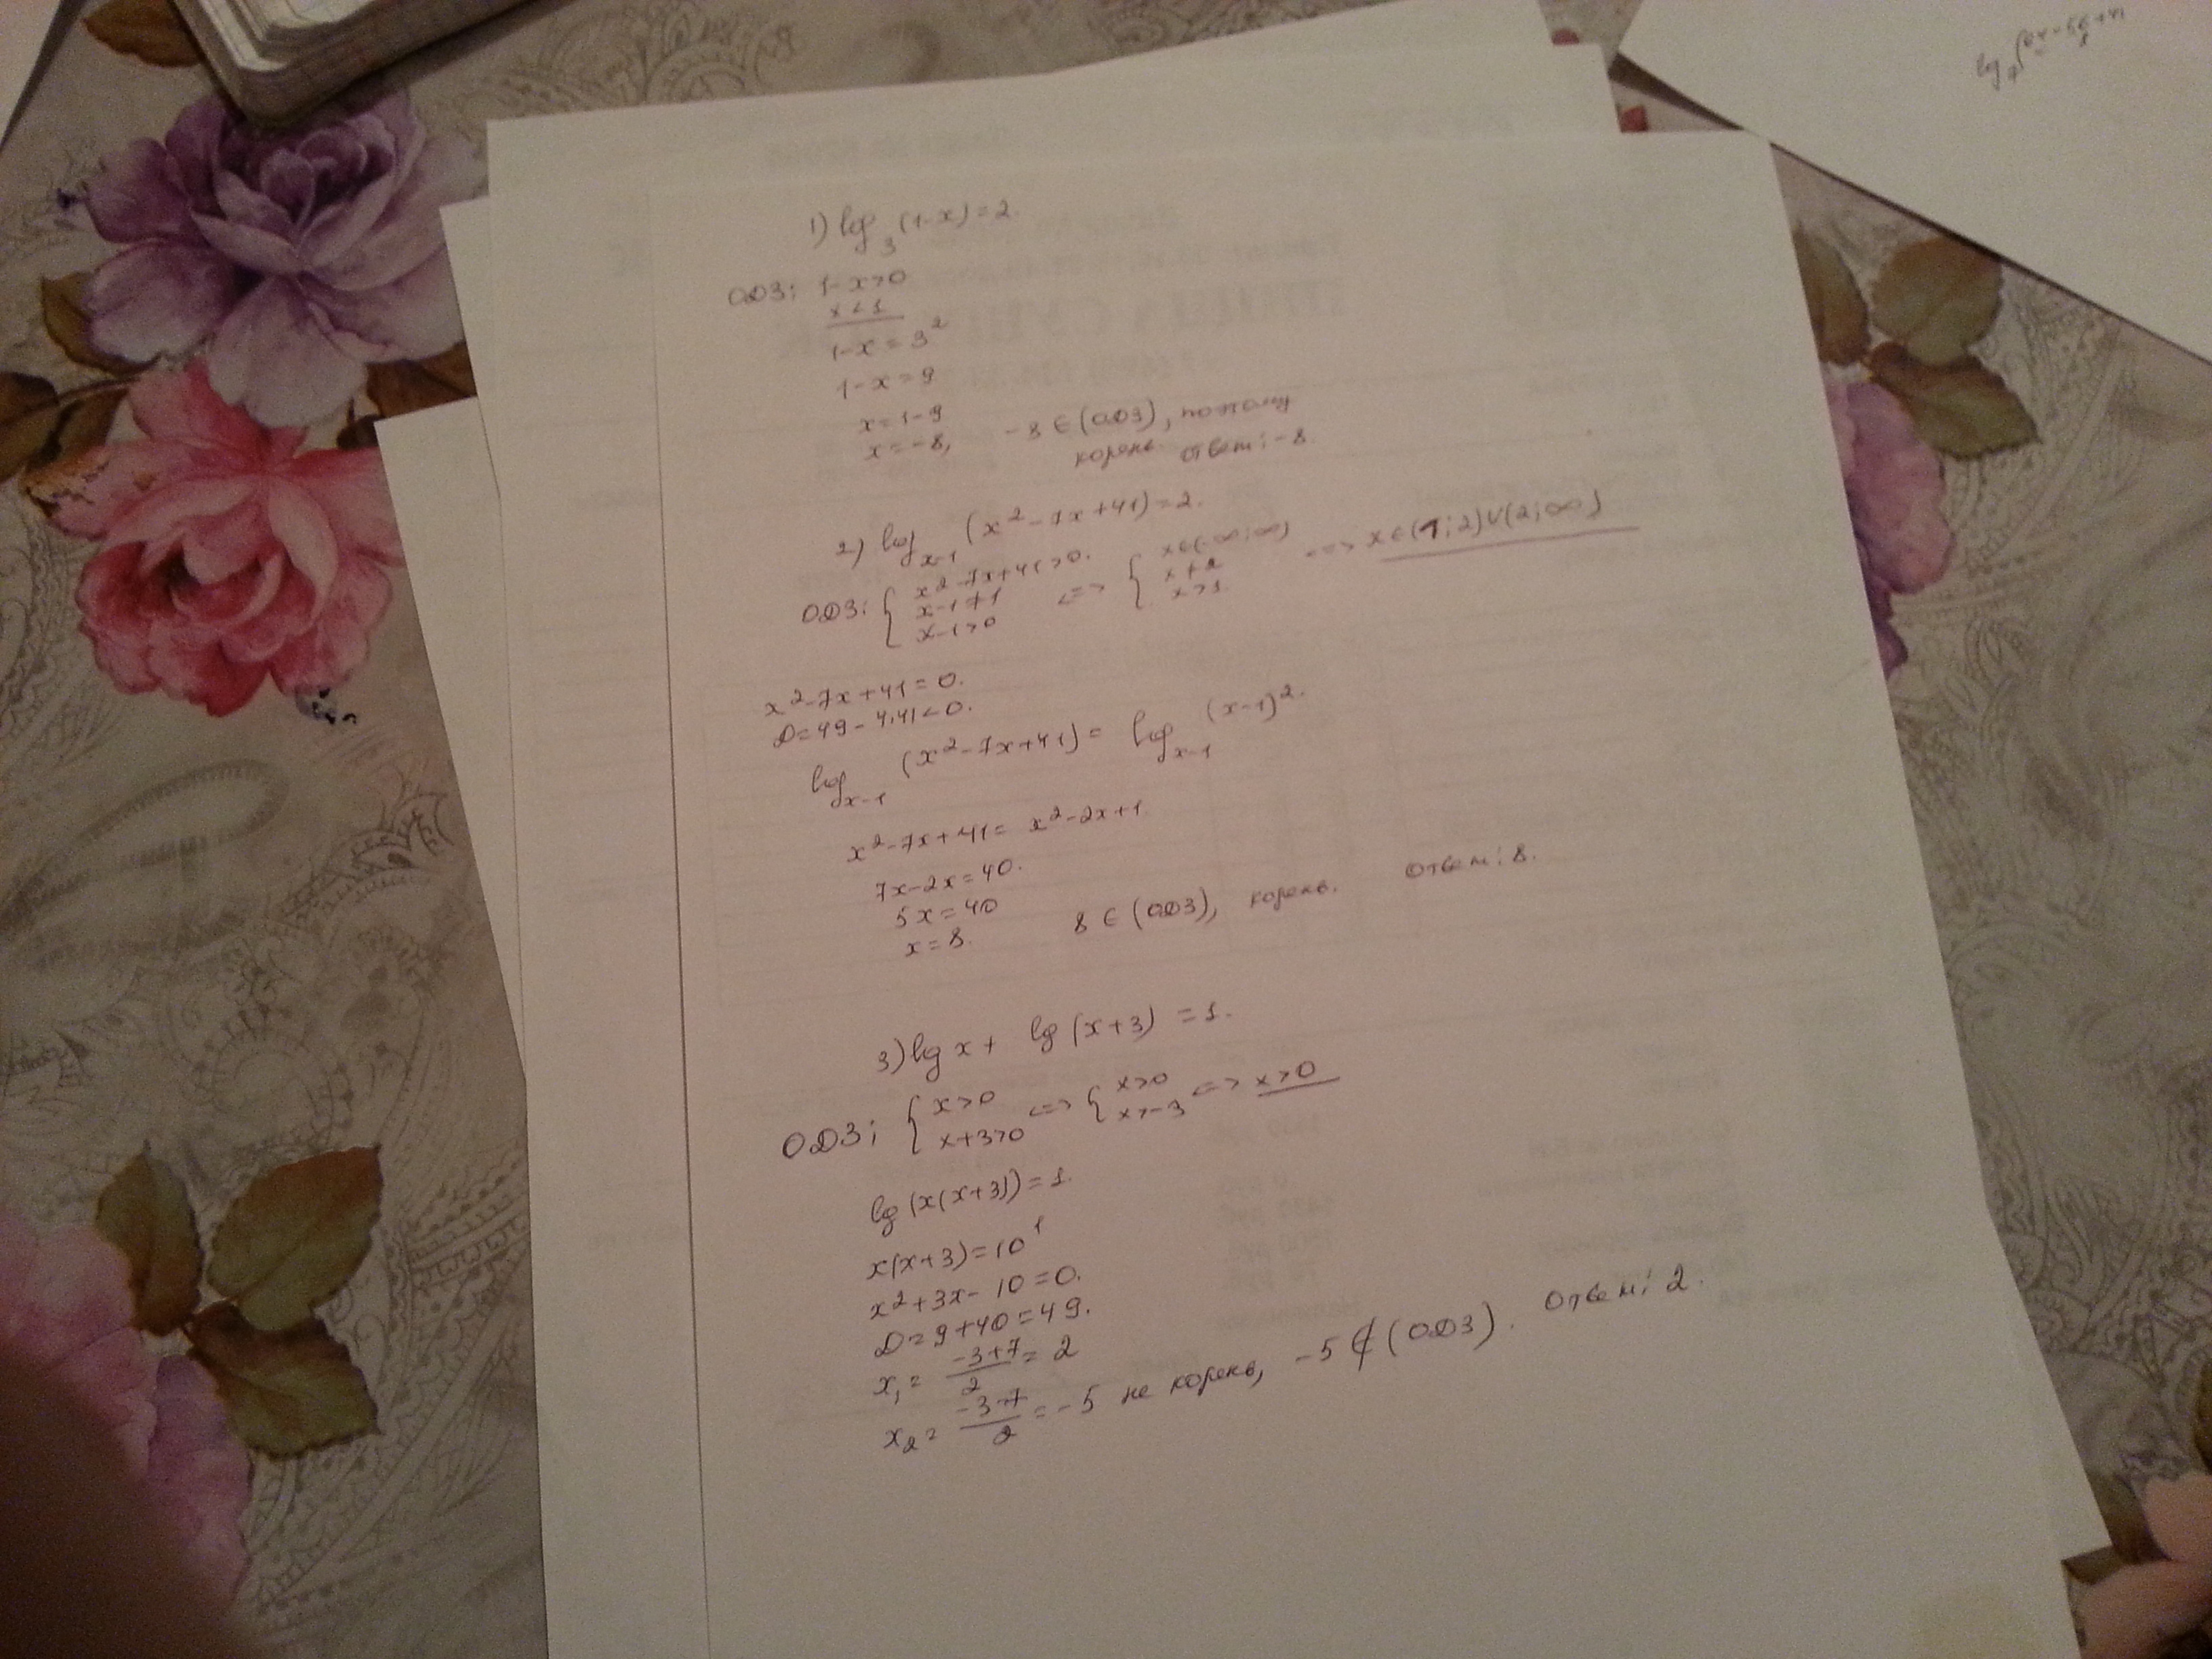 1) log₃(1-x)=2.
ОДЗ: 1-x>0
x<1
1-x=3²
1-x=9
x=1-9
x=-8, -8 ∈ (ОДЗ), поэтому
корень. Ответ: -8.
2) log_{x-1} (x²-7x+41)=2.
ОДЗ: { x²-7x+41>0. x-1≠1 x-1>0 <=> { x∈(-∞;∞) x≠2 x>1 <=> x∈(1;2)∪(2;∞)
x²-7x+41=0.
D=49-4·41<0.
log_{x-1} (x²-7x+41) = log_{x-1} (x-1)².
x²-7x+41= x²-2x+1
7x-2x=40.
5x=40
x=8. 8 ∈ (ОДЗ), корень. Ответ: 8.
3) lg x + lg (x+3) =1.
ОДЗ: { x>0 x+3>0 <=> { x>0 x>-3 <=> x>0
lg (x(x+3))=1.
x(x+3)=10¹
x²+3x-10=0.
D=9+40=49.
x₁= (-3+7)/2 = 2
x₂= (-3-7)/2 = -5 не корень, -5 ∉ (ОДЗ). Ответ: 2.